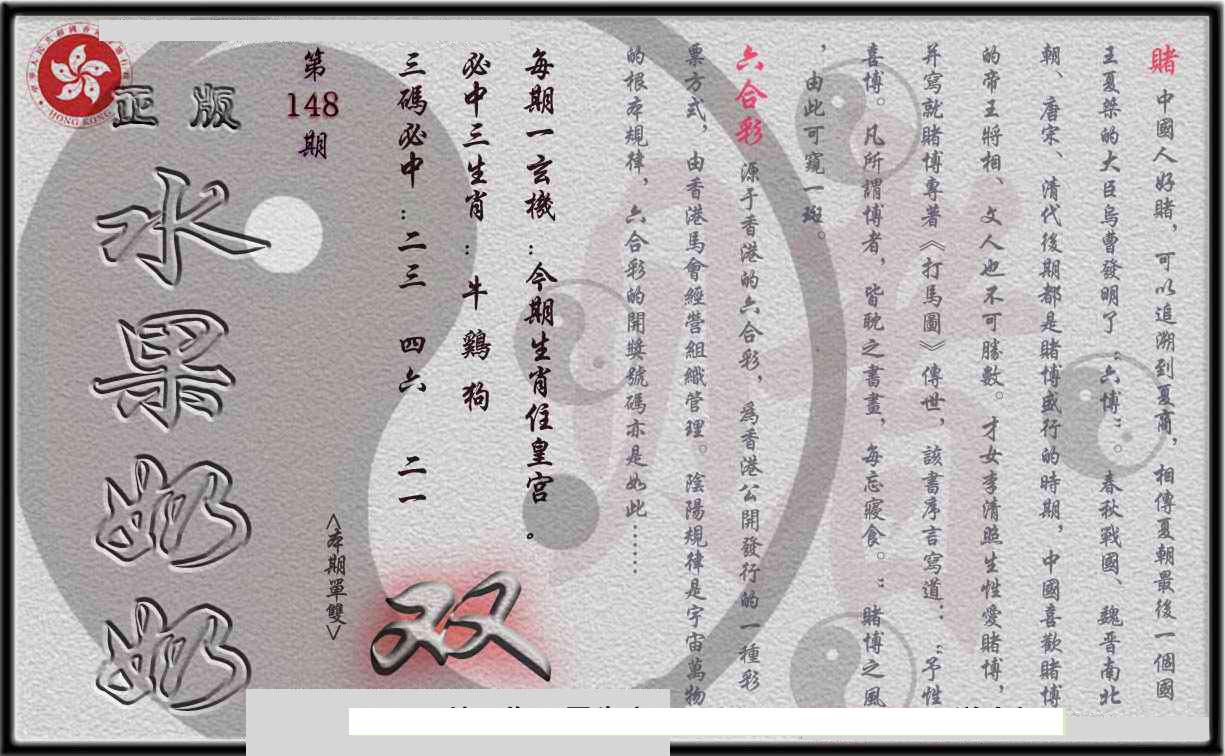 賭 中國人好賭，可以追溯到夏商，相傳夏朝最後一個國
王夏桀的大臣烏曹發明了“六博”。春秋戰國、魏晋南北
朝、唐宋、清代後期都是賭博盛行的時期，中國喜歡賭博
的帝王將相、文人也不可勝數。才女李清照生性愛賭博，
并寫就賭博專著《打馬圖》傳世，該書序言寫道：“予性
喜博。凡所謂博者，皆耽之書畫，每忘寢食。”賭博之風
，由此可窺一斑。
六合彩 源于香港的六合彩，爲香港公開發行的一種彩
票方式，由香港馬會經營組織管理。陰陽規律是宇宙萬物
的根本規律，六合彩的開獎號碼亦是如此……
每期一玄機：今期生肖住皇宫。
必中三生肖：牛 鷄 狗
三碼必中：二三 四六 二一
<本期單雙>
双
第
148
期
正版
水果奶奶
HONG KONG